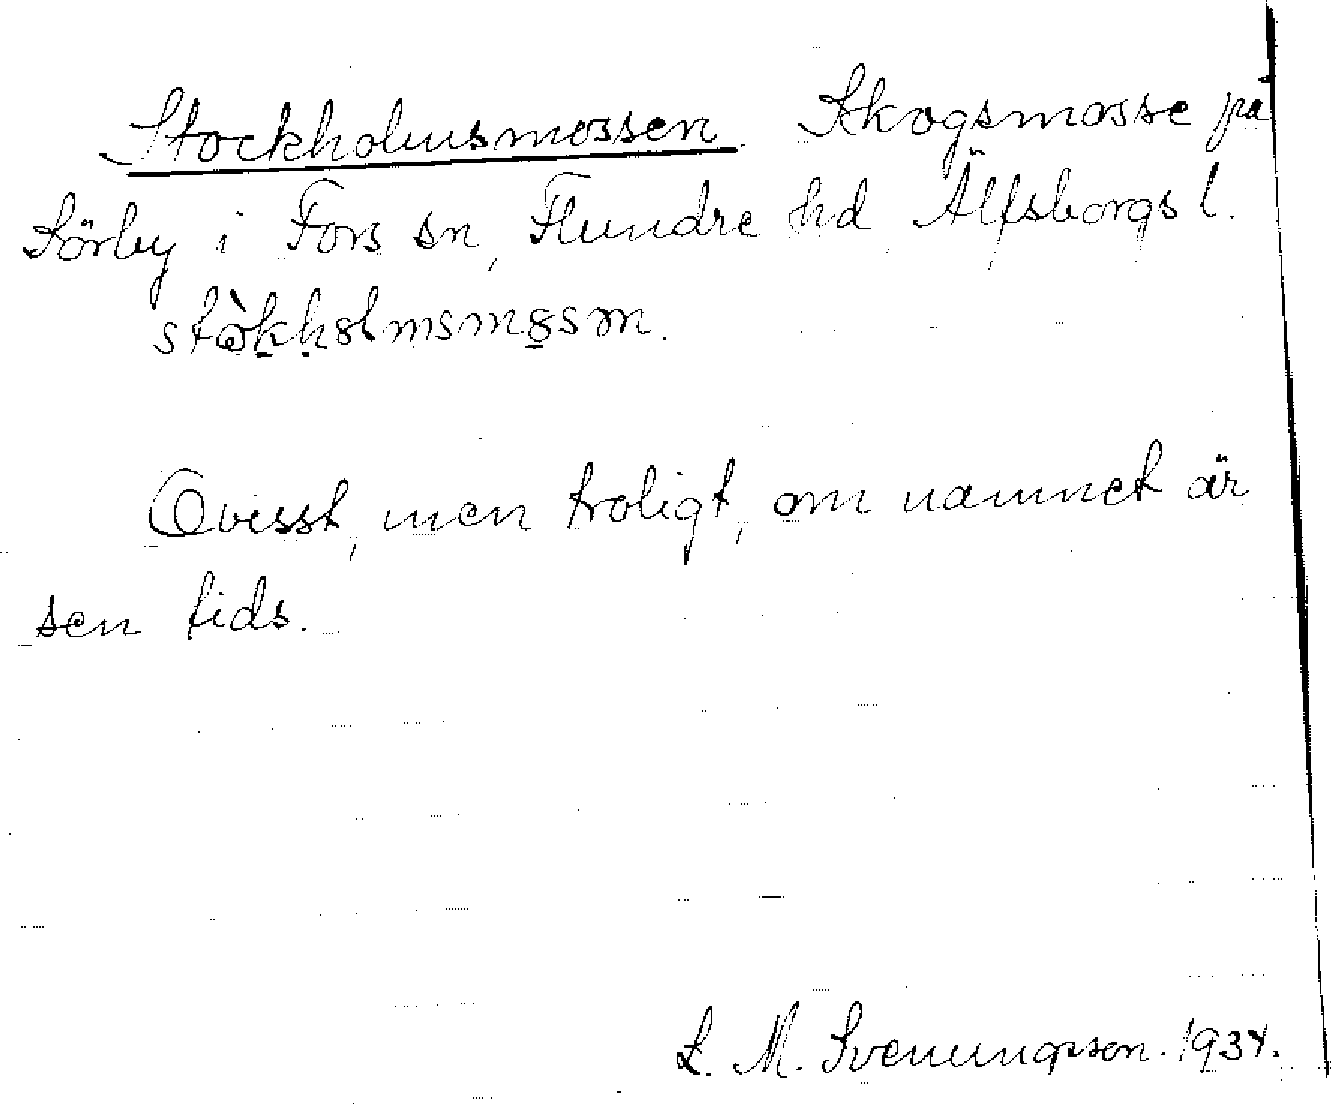 Stockholmsmossen. Skogsmosse på
Sörby i Fors sn, Flundre hd, Älfsborgs l.

Ovisst, men troligt, om namnet är
sen tids.
S. M. Svenungsson. 1934.